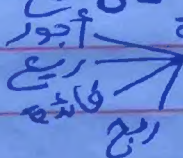 أجور
ريع
فائدة
ربح